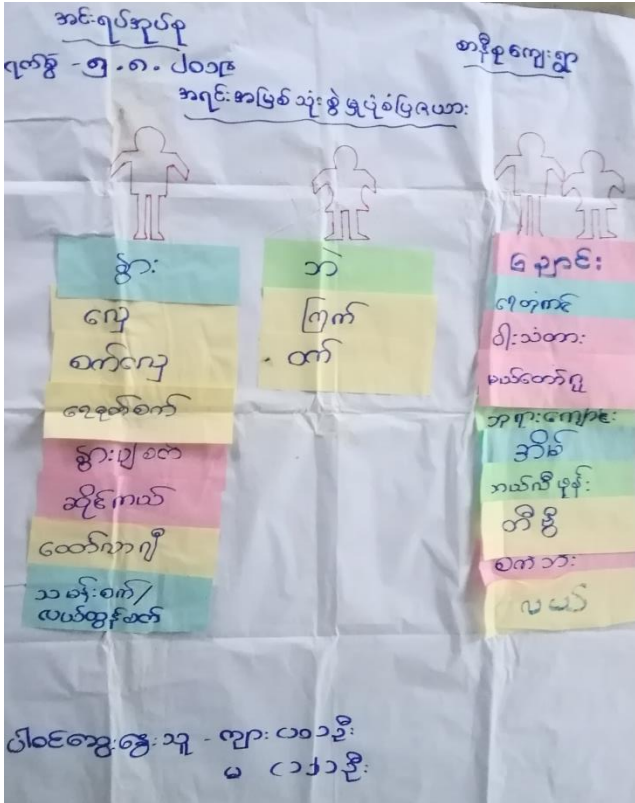 အင်းရပ်အုပ်စု
စာနီစုကျေးရွာ
ရက်စွဲ - ၅.၈.၂၀၁၉
အရင်းအမြစ်သုံးစွဲမှုပုံစံပြဇယား
နွား
လှေ
စက်လှေ
ရေစုတ်စက်
ဆိုင်ကယ်
ထော်လာဂျီ
လယ်ထွန်စက်
ဘဲ
ကြက်
ဝက်
ညောင်း
ရေတုံကင်
ဝါးသံတား
မယ်တော်ဂူ
ဘုရားကျောင်း
အိမ်
တယ်လီဖုန်း
တီဗွီ
စက်ဘီး
လယ်
ပါဝင်ဆွေးနွေးသူ - ကျား
မ